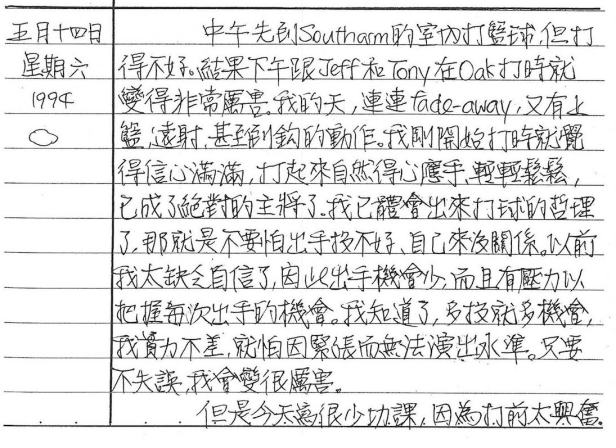 五月十四日
星期六
1994
中午先到Southarm的室內打籃球,但打
得不好。結果下午跟Jeff和Tony在Oak打時就
變得非常厲害。我的天,連連fade-away,又有上
籃、遠射、甚至刮鈎的動作。我剛開始打時就覺
得信心滿滿,打起來自然得心應手、輕輕鬆鬆,
已成了絕對的主將了。我已體會出來打球的哲理
了,那就是不要怕出手投不好、自己來沒關係。以前
我太缺乏自信了,因此出手機會少,而且有壓力以
把握每次出手的機會。我知道了,多投就多機會,
我實力不差,就怕因緊張而無法演出水準。只要
不失誤,我會變很厲害。
但是今天寫很少功課,因為打前太興奮。